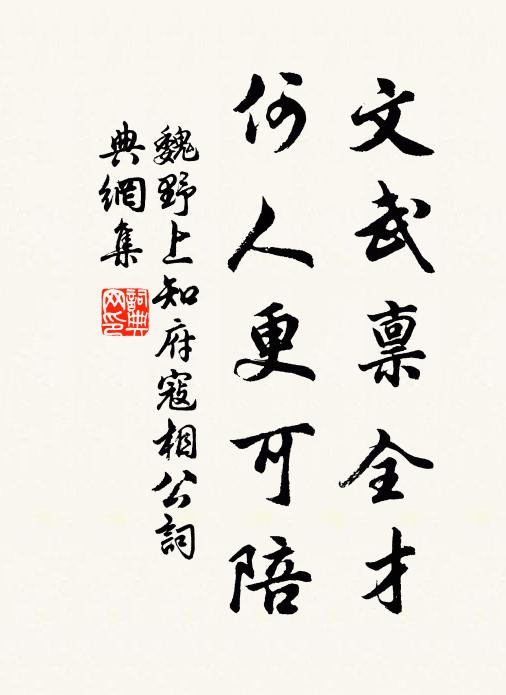 文武禀全才
何人更可陪
魏野上知府寇相公詞
典網集
詞典
网印